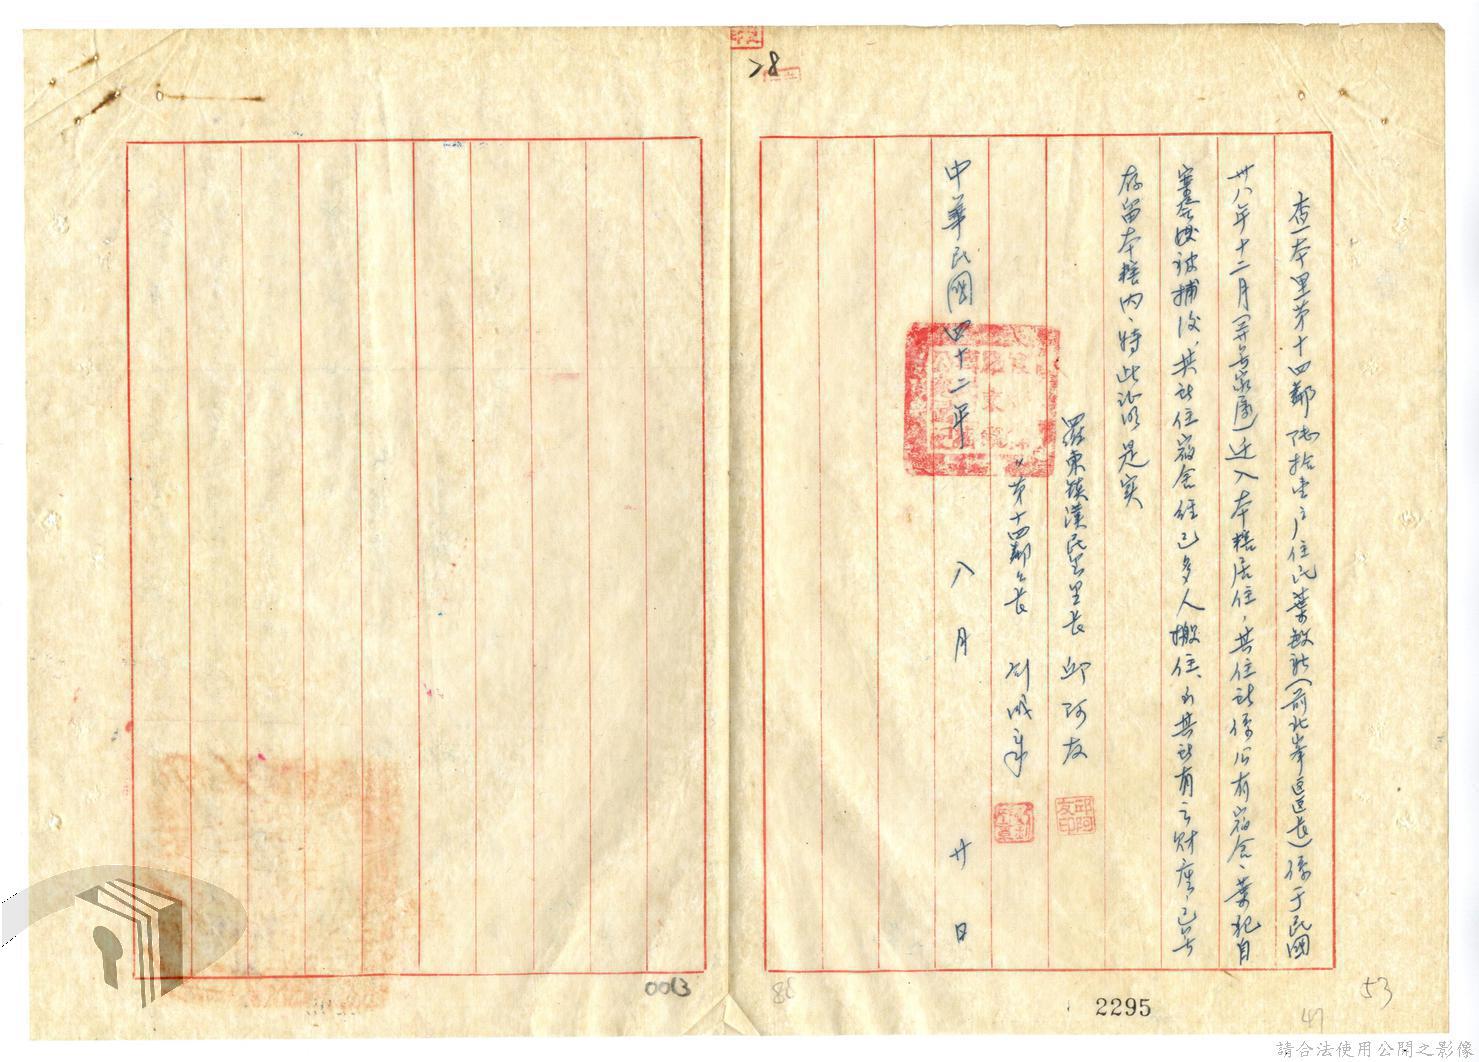 28
查本里第十四鄰陸拾壹戶住民葉敏新(前北峯區區長)係于民國
卅八年十二月(並無家屬)迁入本轄居住、其住所係公有宿舍、葉犯自
案發被捕後、其所住宿舍經已多人搬住、而其所有之財產、已無
存留本轄內、特此證明是实
羅東鎮漢民里里長 邱阿友
邱阿友印
〃第十四鄰鄰長
中華民國四十二年 八月 廿日
0013
2295
53
47
請合法使用公開之影像